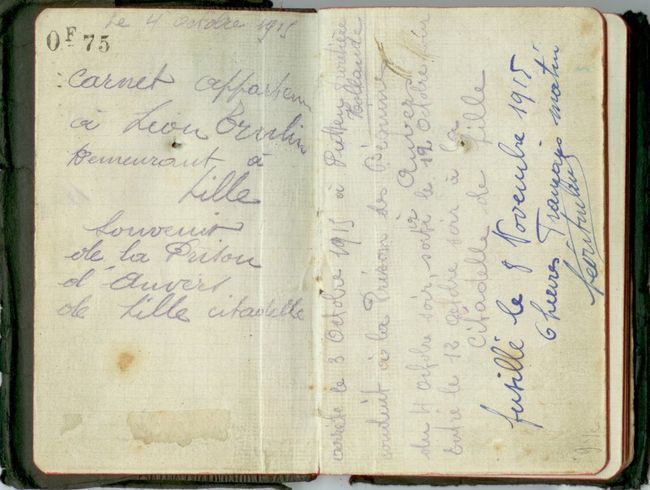 Le 4 Octobre 1915
0F 75
Carnet appartena
à Leon
Demeurant à
Lille
Souvenir
de la Prison
d'Anvers
de Lille citadelle
arrêté le 3 Octobre 1915 à Putten frontière
Hollande
conduit à la Prison des Béguines
à Anvers
du 4 Octobre soir, sorti le 12 Octobre soir
Entré le 12 Octobre soir à la
Citadelle de Lille
fusillé le 8 Novembre 1915
6 heures Français matin